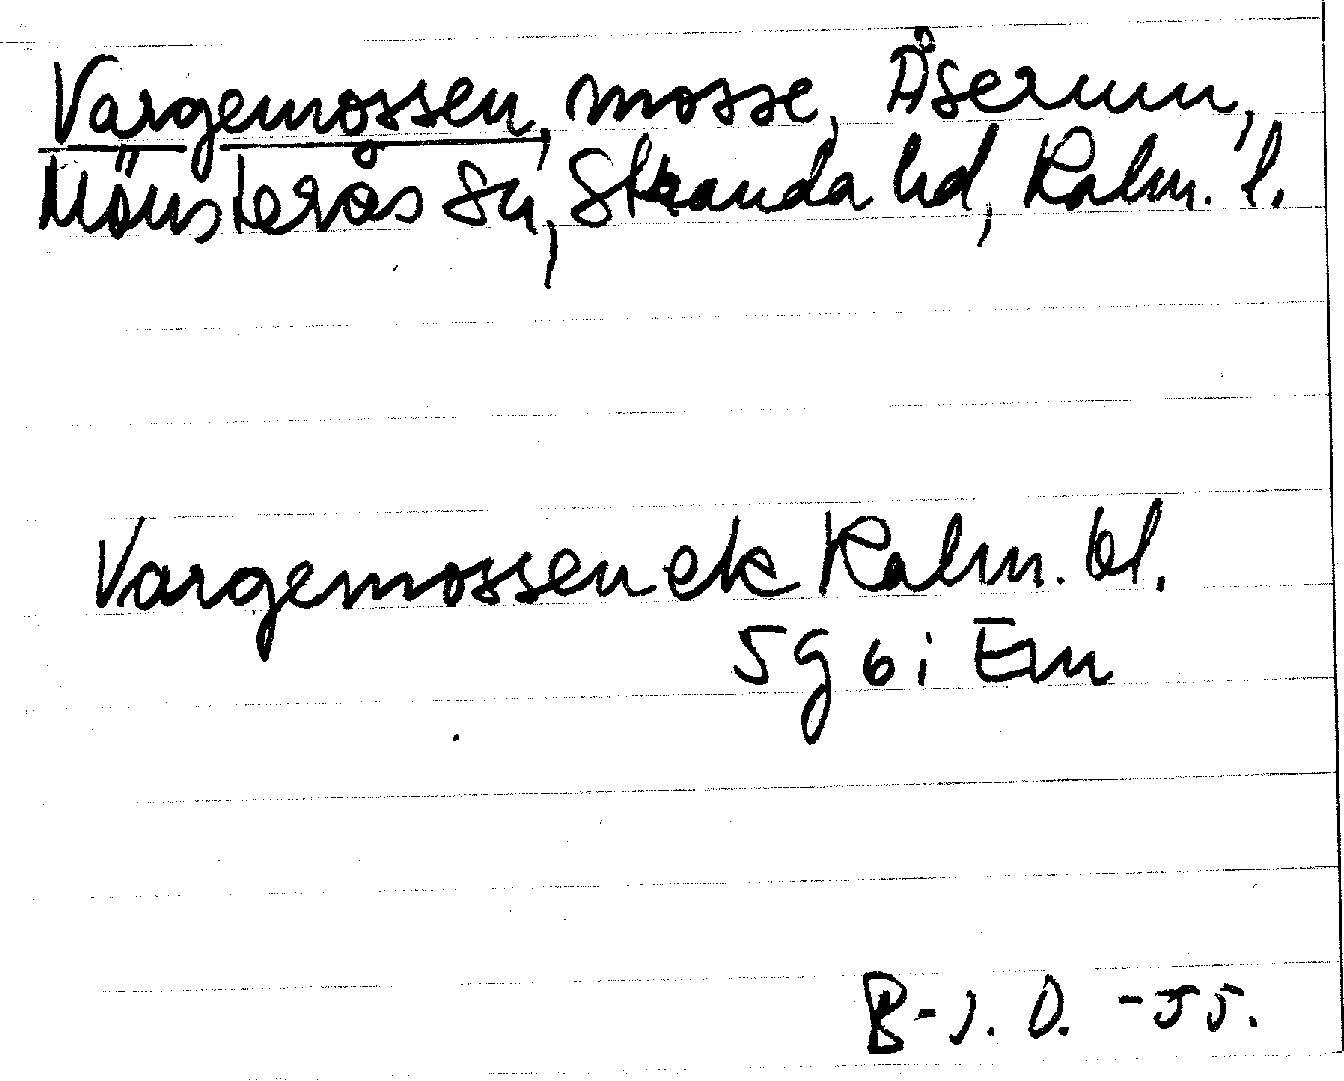 Vargemossen, mosse, Åserum,
Mönsterås sn, Stranda hd, Kalm. l.
Vargemossen ek Kalm. bl.
5 g 6 i Em
B-J. O. -55.